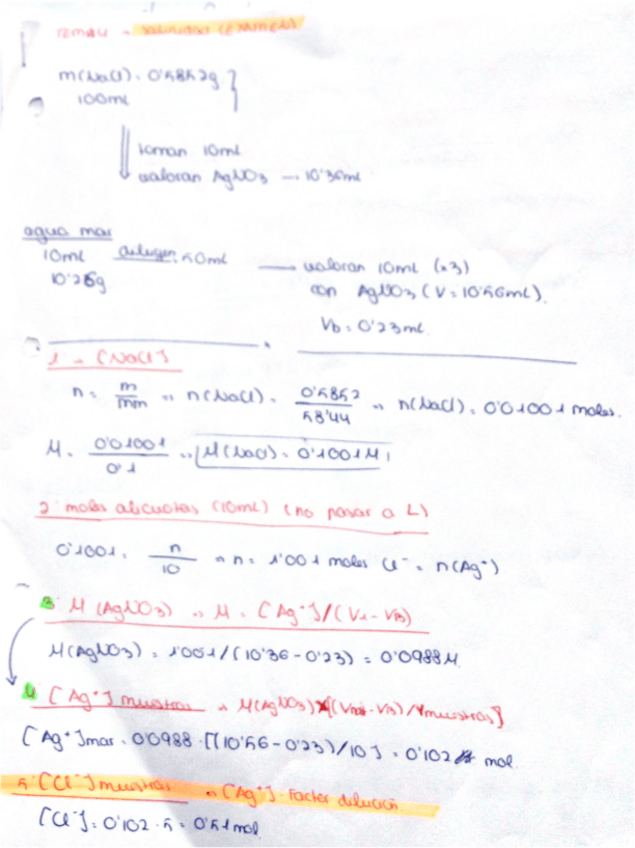 salinidad (EXAMEN)
m(NaCl) = 0'5852g
100ml
toman 10ml
valoran AgNO3 → 10'36ml
agua mar
10ml diluyen 50ml → valoran 10ml (x3)
10'25g con AgNO3 (V = 10'56ml).
Vb = 0'23ml.
1 - [NaCl]
n = m/mm → n(NaCl) = 0'5852/58'44 → n(NaCl) = 0'01001 moles.
M = 0'01001/0'1 → M(NaCl) = 0'1001M
2 moles alicuotas (10ml) (no pasar a L)
0'1001 = n/10 → n = 1'001 moles Cl⁻ = n(Ag⁺)
3 M (AgNO3) → M = [Ag⁺]/(V1 - VB)
M(AgNO3) = 1'001/(10'36 - 0'23) = 0'0988M.
4 [Ag⁺] muestras → M(AgNO3) x [(V - VB)/Vmuestras]
[Ag⁺]mar = 0'0988 · [(10'56 - 0'23)/10] = 0'102 mol.
5 [Cl⁻] muestras → [Ag⁺] · Factor dilución
[Cl⁻] = 0'102 · 5 = 0'51mol